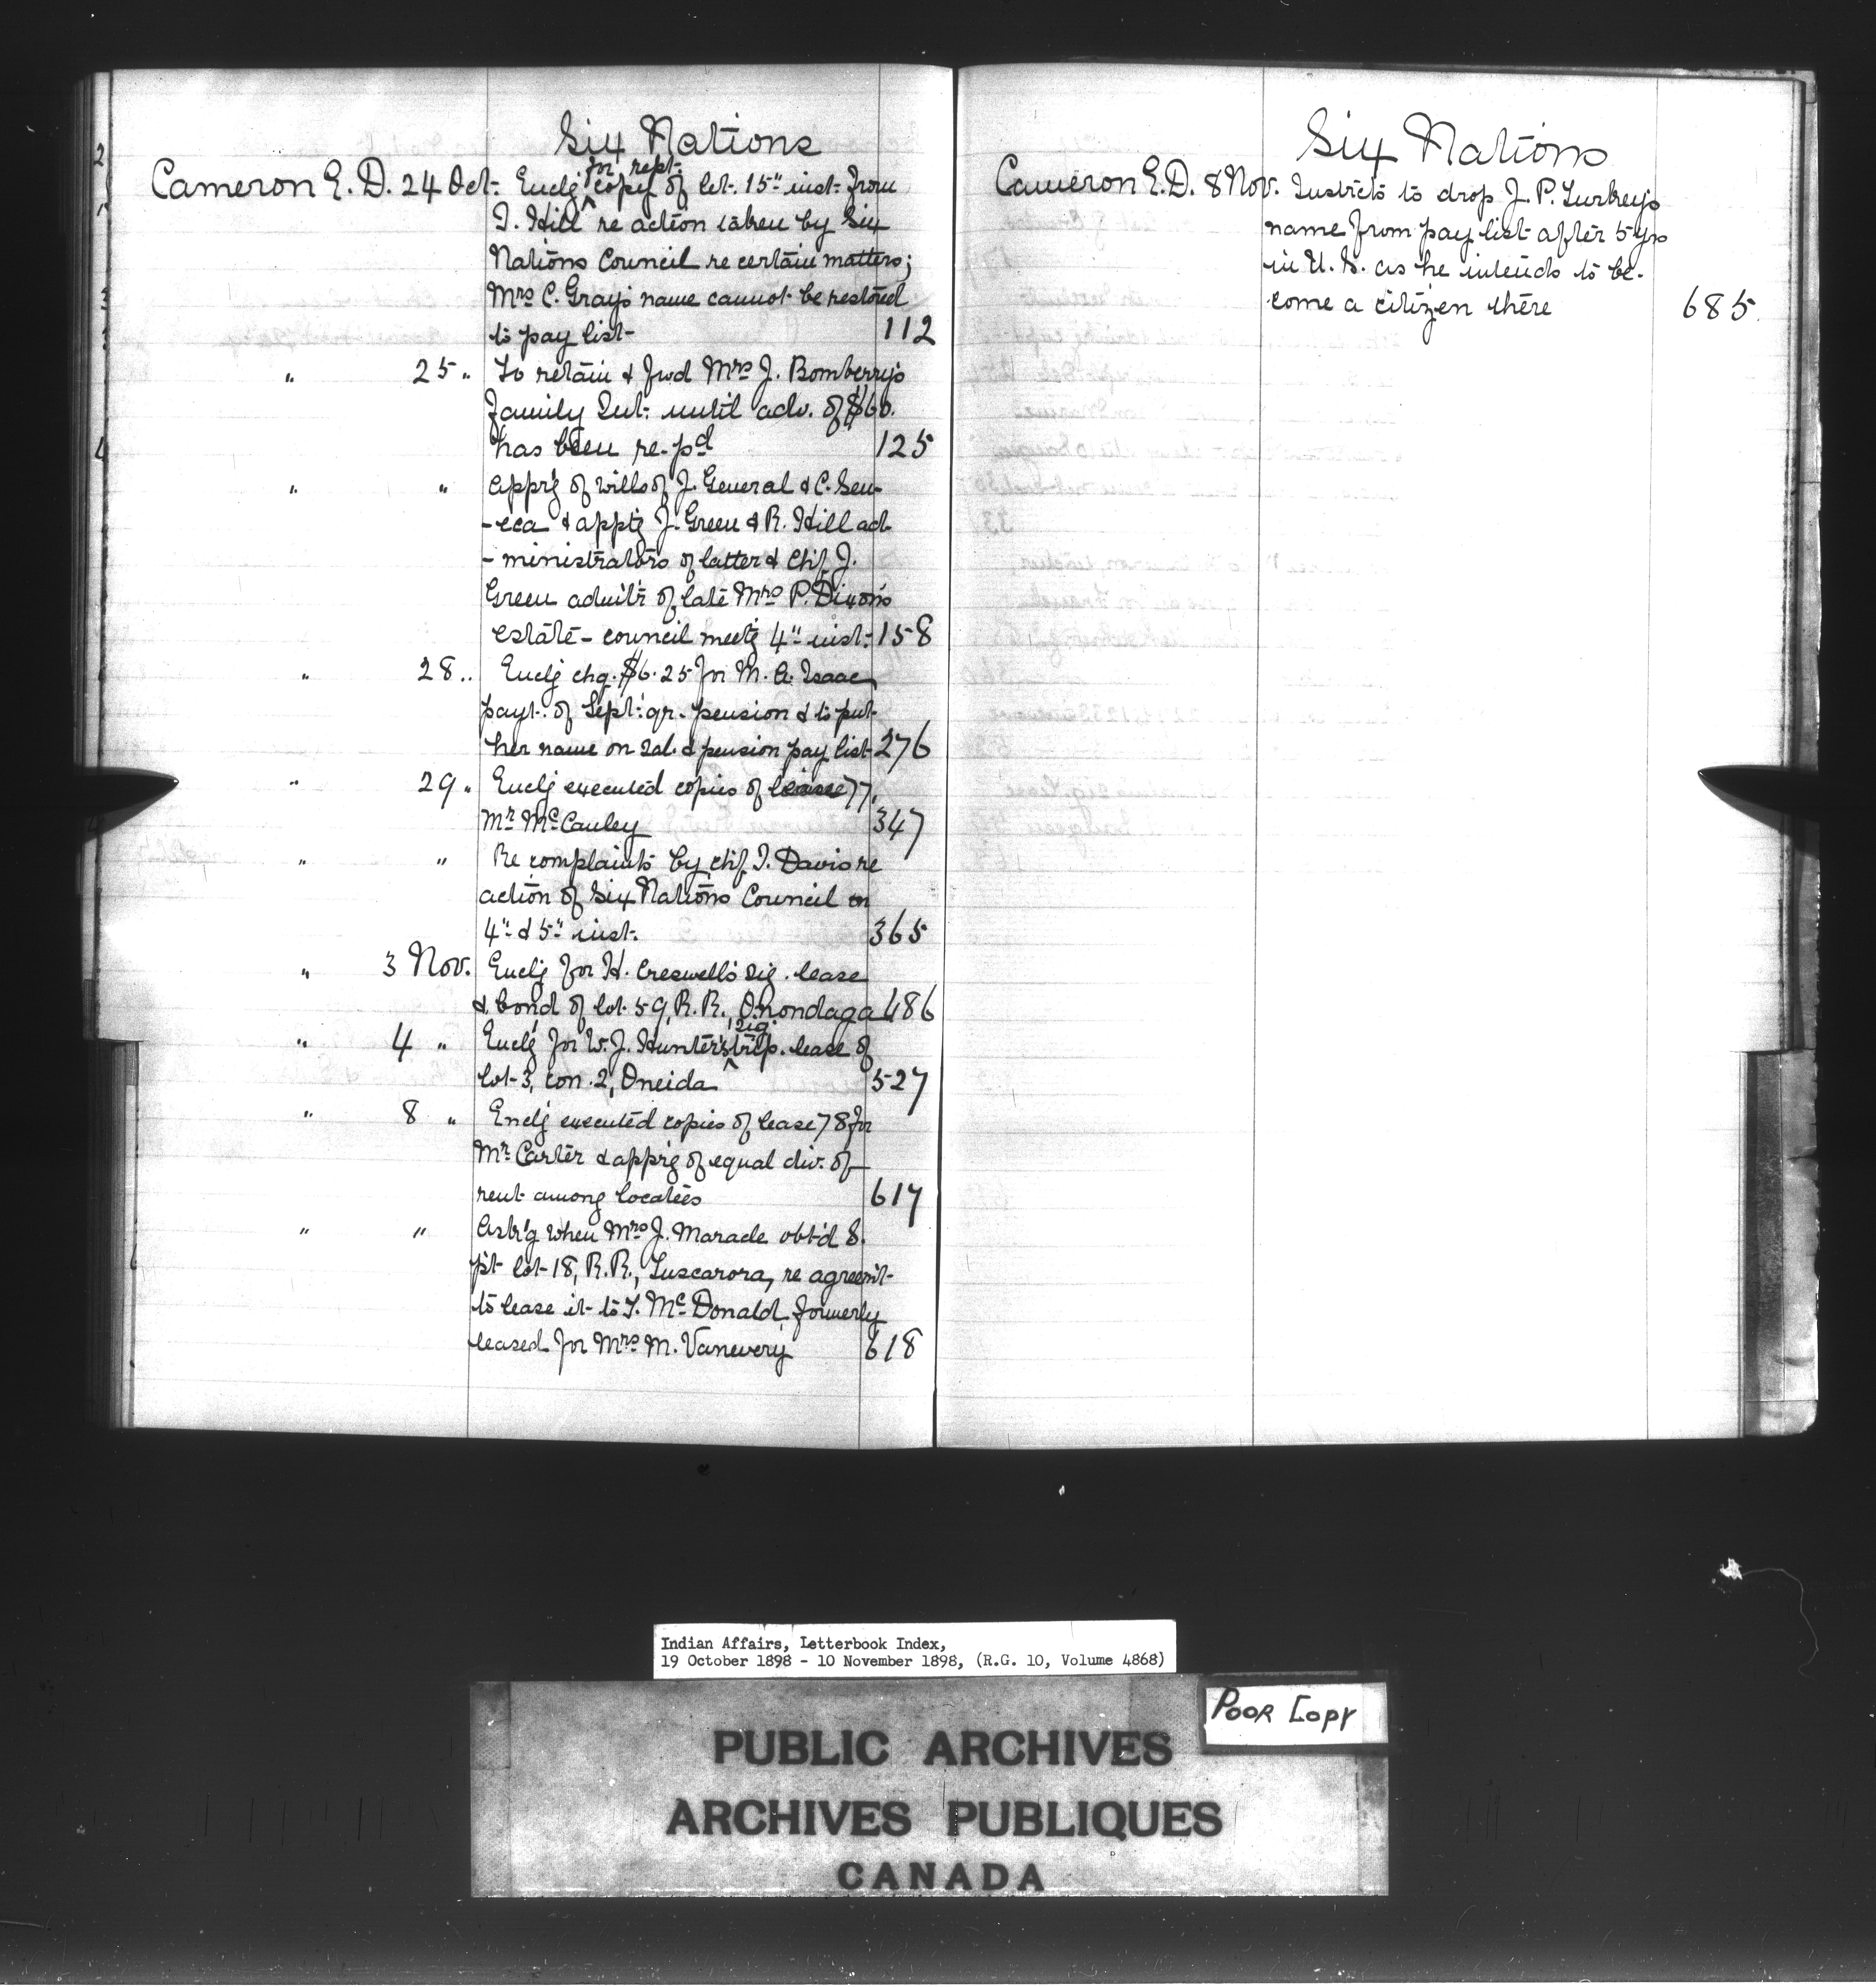 Six Nations
for rept.
Cameron E. D. 24 Oct. Enclg copy of let. 15" inst. from
I. Hill re action taken by Six
Nations Council re certain matters;
Mrs C. Gray's name cannot be restored
to pay list 112
" 25 " To retain & fwd Mrs J. Bomberry's
family Int. until adv. of $60.
has been re-pd 125
" " Appr'g of wills of J. General & C. Sen-
-eca & apptg J. Green & R. Hill ad-
-ministrators of latter & Chf J.
Green admitr of late Mrs P. Dixon's
estate - council meetg 4" inst. 158
" 28 " Enclg chq. $6.25 for M. A. Isaac
payt. of Sept. qr. pension & to put
her name on sal. & pension pay list 276
" 29 " Enclg executed copies of lease 77,
Mr McCauley 347
" " Re complaints by chf. I. Davis re
action of Six Nations Council on
4" & 5" inst. 365
" 3 Nov. Enclg for H. Creswell's sig. lease
& bond of lot 59, R.R. Onondaga 486
sig.
" 4 " Enclg for W. J. Hunter's trip. lease of
lot 3, con. 2, Oneida 527
" 8 " Enclg executed copies of lease 78 for
Mr Carter & appr'g of equal div. of
rent among locatees 617
" " Ask'g when Mrs J. Maracle obt'd S.
pt lot 18, R.R., Tuscarora, re agreem't
to lease it to T. McDonald, formerly
leased for Mrs M. Vanevery 618
Six Nations
Cameron E. D. 8 Nov. Instrcts to drop J. P. Turkey's
name from pay list after 5 yrs
in U.S. as he intends to be-
come a citizen there 685
Indian Affairs, Letterbook Index,
19 October 1898 - 10 November 1898, (R.G. 10, Volume 4868)
POOR COPY
PUBLIC ARCHIVES
ARCHIVES PUBLIQUES
CANADA